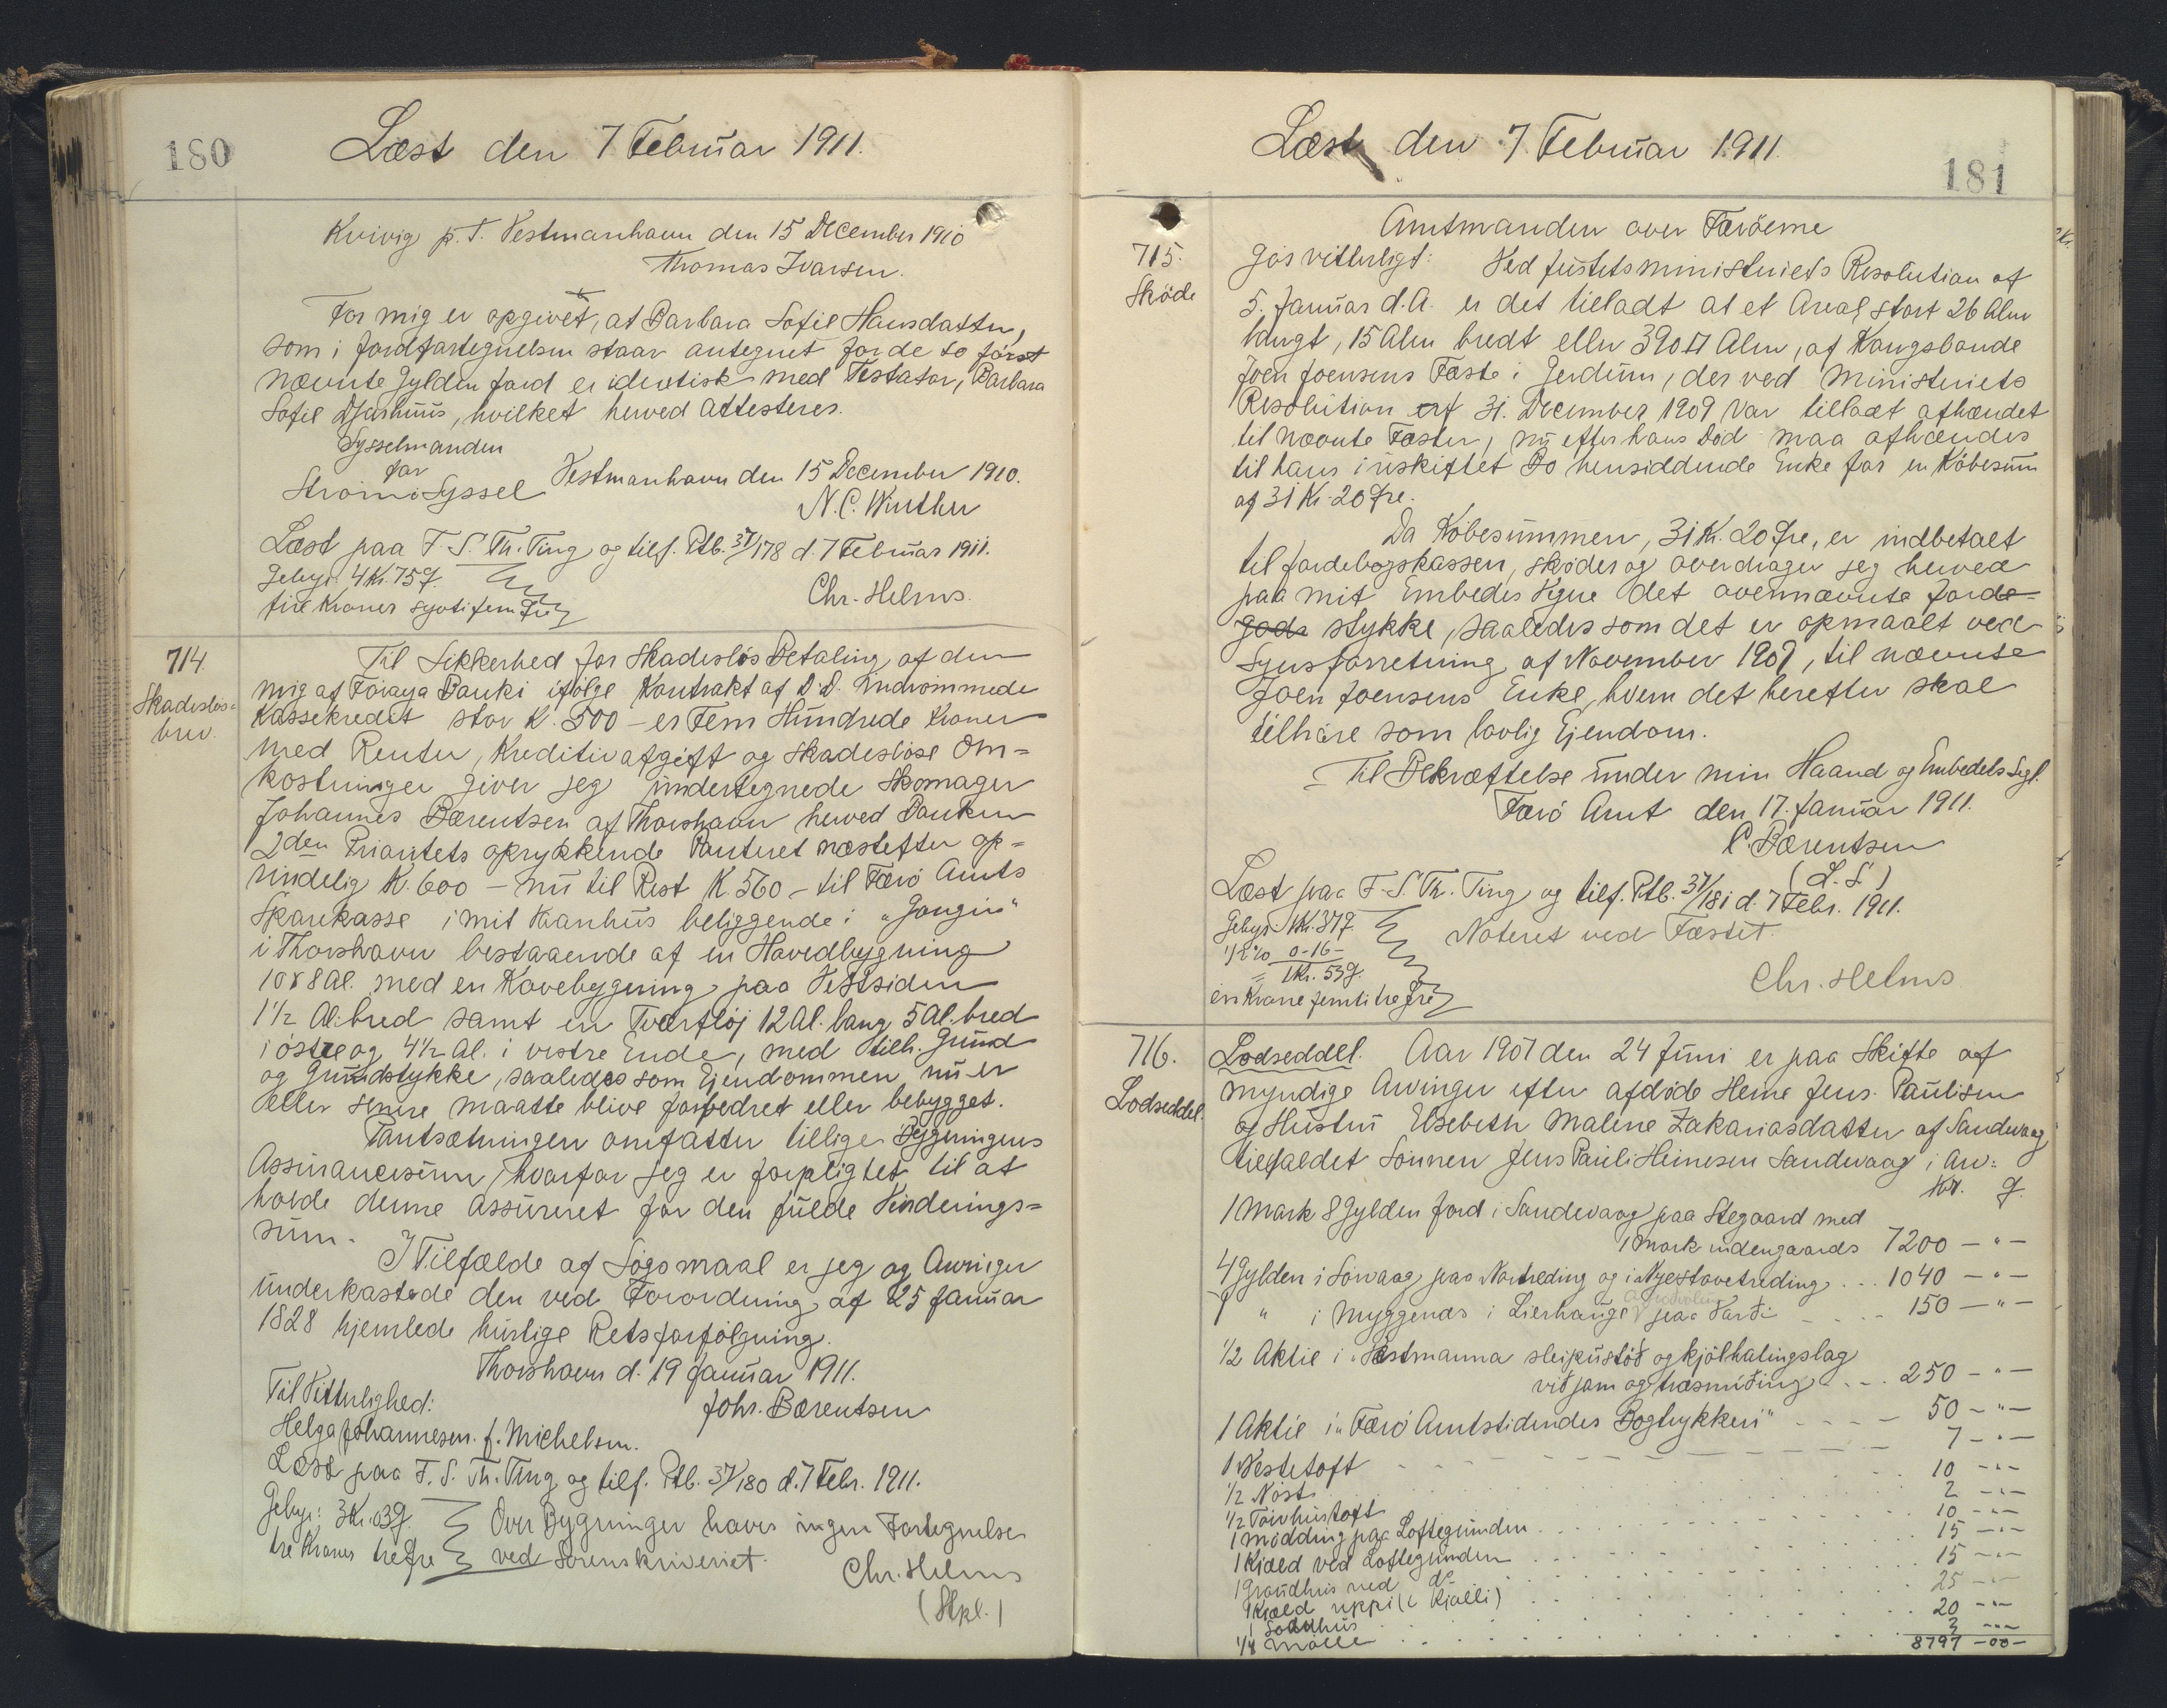 180
Læst den 7 Februar 1911.
Kvivig p. T. Vestmanhavn den 15 December 1910
Thomas Ivarsen.
For mig er opgivet, at Barbara Sofie Hansdatter,
som i Jordfortegnelsen staar antegnet for de to først
nævnte Gylden Jord er identisk med Testator, Barbara
Sofie Djurhuus, hvilket herved attesteres.
Sysselmanden
for
Strömö Syssel Vestmanhavn den 15 December 1910.
N. C. Winther
Læst paa F. S. Th. Ting og tilf. Ptb. 37/178 d. 7 Februar 1911.
Gebyr. 4 Kr. 75 Ø.
fire Kroner syvti fem Øre
Chr. Helms.
714.
Skadeslös-
brev.
Til Sikkerhed for skadeslös Betaling af den
mig af Föroya Banki ifölge Kontrakt af D.D. indrömmede
Kassekredit stor K. 500 - er Fem Hundrede Kroner
med Renter, Kreditivafgift og skadeslöse Om-
kostninger giver jeg undertegnede Skomager
Johannes Bærentsen af Thorshavn herved Banken
2den Prioritets oprykkende Panteret næstefter op-
rindelig K. 600 - nu til Rest K 560 - til Færö Amts
Sparekasse i mit Vaanhus beliggende i "Gongin"
i Thorshavn bestaaende af en Hovedbygning
10 x 8 Al. med en Kovebygning paa Vestsiden
1 1/2 Al. bred samt en Tværfløj 12 Al. lang 5 Al. bred
i østre og 4 1/2 Al. i vestre Ende, med tilh. Grund
og Grundstykke, saaledes som Ejendommen nu er
eller senere maatte blive forbedret eller bebygget.
Pantsætningen omfatter tillige Bygningens
Assurancesum, hvorfor jeg er forpligtet til at
holde denne assureret for den fulde Vurderings-
sum.
I Tilfælde af Søgsmaal er jeg og Arvinger
underkastede den ved Forordning af 25 Januar
1828 hjemlede hurtige Retsforfölgning.
Thorshavn d. 19 Januar 1911.
Til Vitterlighed:
Johs. Bærentsen
Helga Johannesen. f. Michelsen.
Læst paa F. S. Th. Ting og tilf. Ptb. 37/180 d. 7 Febr. 1911.
Gebyr: 3 Kr. 03 Ø.
tre Kroner tre Øre
Over Bygninger haves ingen Fortegnelse
ved Sorenskriveriet.
Chr. Helms
(Stpl.)
Læst den 7 Februar 1911.
181
715.
Sköde
Amtmanden over Færöerne
Gör vitterligt: Ved Justitsministeriets Resolution af
5. Januar d.A. er det tilladt at et Areal stort 26 Alen
langt, 15 Alen bredt eller 390 □ Alen, af Kongsbonde
Joen Joensens Fæste i Jerdum, der ved Ministeriets
Resolution af 31. December 1909 var tilladt afhændet
til nævnte Fæster, nu efter hans Död maa afhændes
til hans i uskiftet Bo hensiddende Enke for en Köbesum
af 31 Kr. 20 Øre.
Da Köbesummen, 31 Kr. 20 Øre, er indbetalt
til Jordebogskassen, sköder og overdrager jeg herved
paa mit Embedes Vegne det ovennævnte Jorde-
gods stykke, saaledes som det er opmaalt ved
Synsforretning af November 1909, til nævnte
Joen Joensens Enke, hvem det herefter skal
tilhøre som lovlig Ejendom.
Til Bekræftelse under min Haand og Embedets Segl.
Færö Amt den 17. Januar 1911.
C. Bærentsen
(L. S.)
Læst paa F. S. Th. Ting og tilf. Ptb. 37/181 d. 7 Febr. 1911.
Gebyr 1 Kr. 37 Ø.
1/2 % 0 - 16 -
= 1 Kr. 53 Ø.
en Krone femti tre Øre
Noteret ved Fæstet.
Chr. Helms
716.
Lodseddel.
Lodseddel. Aar 1907 den 24 Juni er paa Skifte af
myndige Arvinger efter afdöde Heine Jens. Paulisen
og Hustru Elsebeth Malene Zakariasdatter af Sandevaag
tilfaldet Sönnen Jens Pauli Heinesen Sandevaag i Arv:
Kr. Ø.
1 Mark 8 Gylden Jord i Sandevaag paa Stegaard med
1 Mark indengaards 7200 - " -
4 Gylden i Sörvaag paa Nortreding og i Nyestovetreding . . . 1040 - " -
1 " i Myggenæs i Lierhauge paa Varði . . . 150 - " -
1/2 Aktie i "Vestmanna sleipustöð og kjölhalingslag
við jarn og træsmiðing . . . 250 - " -
1 Aktie i "Færö Amtstidendes Bogtrykkeri" . . . 50 - " -
1 Hestetoft . . . 7 - " -
1/2 Nöst . . . 10 - " -
1/2 Törvhustoft . . . 2 - " -
1 Mödding paa Loftegrunden . . . 10 - " -
1 Kjæld ved Loftegrunden . . . 15 - " -
1 Grundhus ved do . . . 15 - " -
1 Kjæld uppi (i Kjalli) . . . 25 - " -
1 Sodnhus . . . 20 - " -
1/8 Mölle . . . 3 - " -
8797 - 00 -